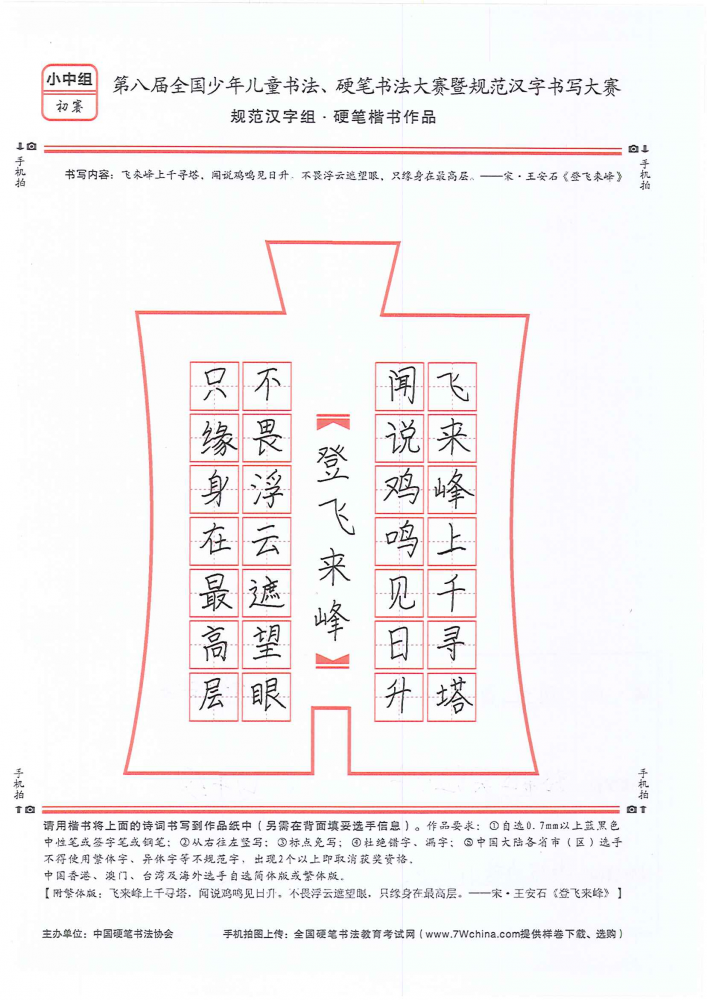 小中组
初赛
第八届全国少年儿童书法、硬笔书法大赛暨规范汉字书写大赛
规范汉字组·硬笔楷书作品
手机拍
手机拍
书写内容：飞来峰上千寻塔，闻说鸡鸣见日升。不畏浮云遮望眼，只缘身在最高层。——宋·王安石《登飞来峰》
飞来峰上千寻塔
闻说鸡鸣见日升
登飞来峰
不畏浮云遮望眼
只缘身在最高层
手机拍
手机拍
请用楷书将上面的诗词书写到作品纸中（另需在背面填妥选手信息）。作品要求：①自选0.7mm以上蓝黑色
中性笔或签字笔或钢笔；②从右往左竖写；③标点免写；④杜绝错字、漏字；⑤中国大陆各省市（区）选手
不得使用繁体字、异体字等不规范字，出现2个以上即取消获奖资格。
中国香港、澳门、台湾及海外选手自选简体版或繁体版。
【附繁体版：飞来峰上千寻塔，闻说鸡鸣见日升。不畏浮云遮望眼，只缘身在最高层。——宋·王安石《登飞来峰》】
主办单位：中国硬笔书法协会
手机拍图上传：全国硬笔书法教育考试网（www.7Wchina.com提供样卷下载、选购）